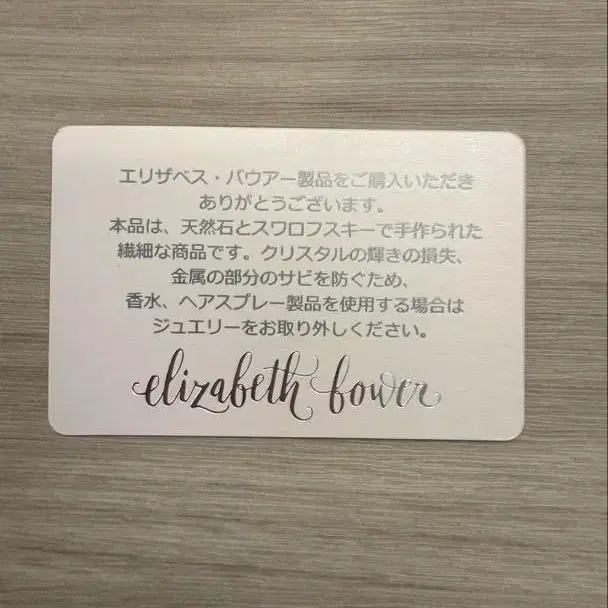 エリザベス・バウアー製品をご購入いただき
ありがとうございます。
本品は、天然石とスワロフスキーで手作られた
繊細な商品です。クリスタルの輝きの損失、
金属の部分のサビを防ぐため、
香水、ヘアスプレー製品を使用する場合は
ジュエリーをお取り外しください。
elizabeth bower